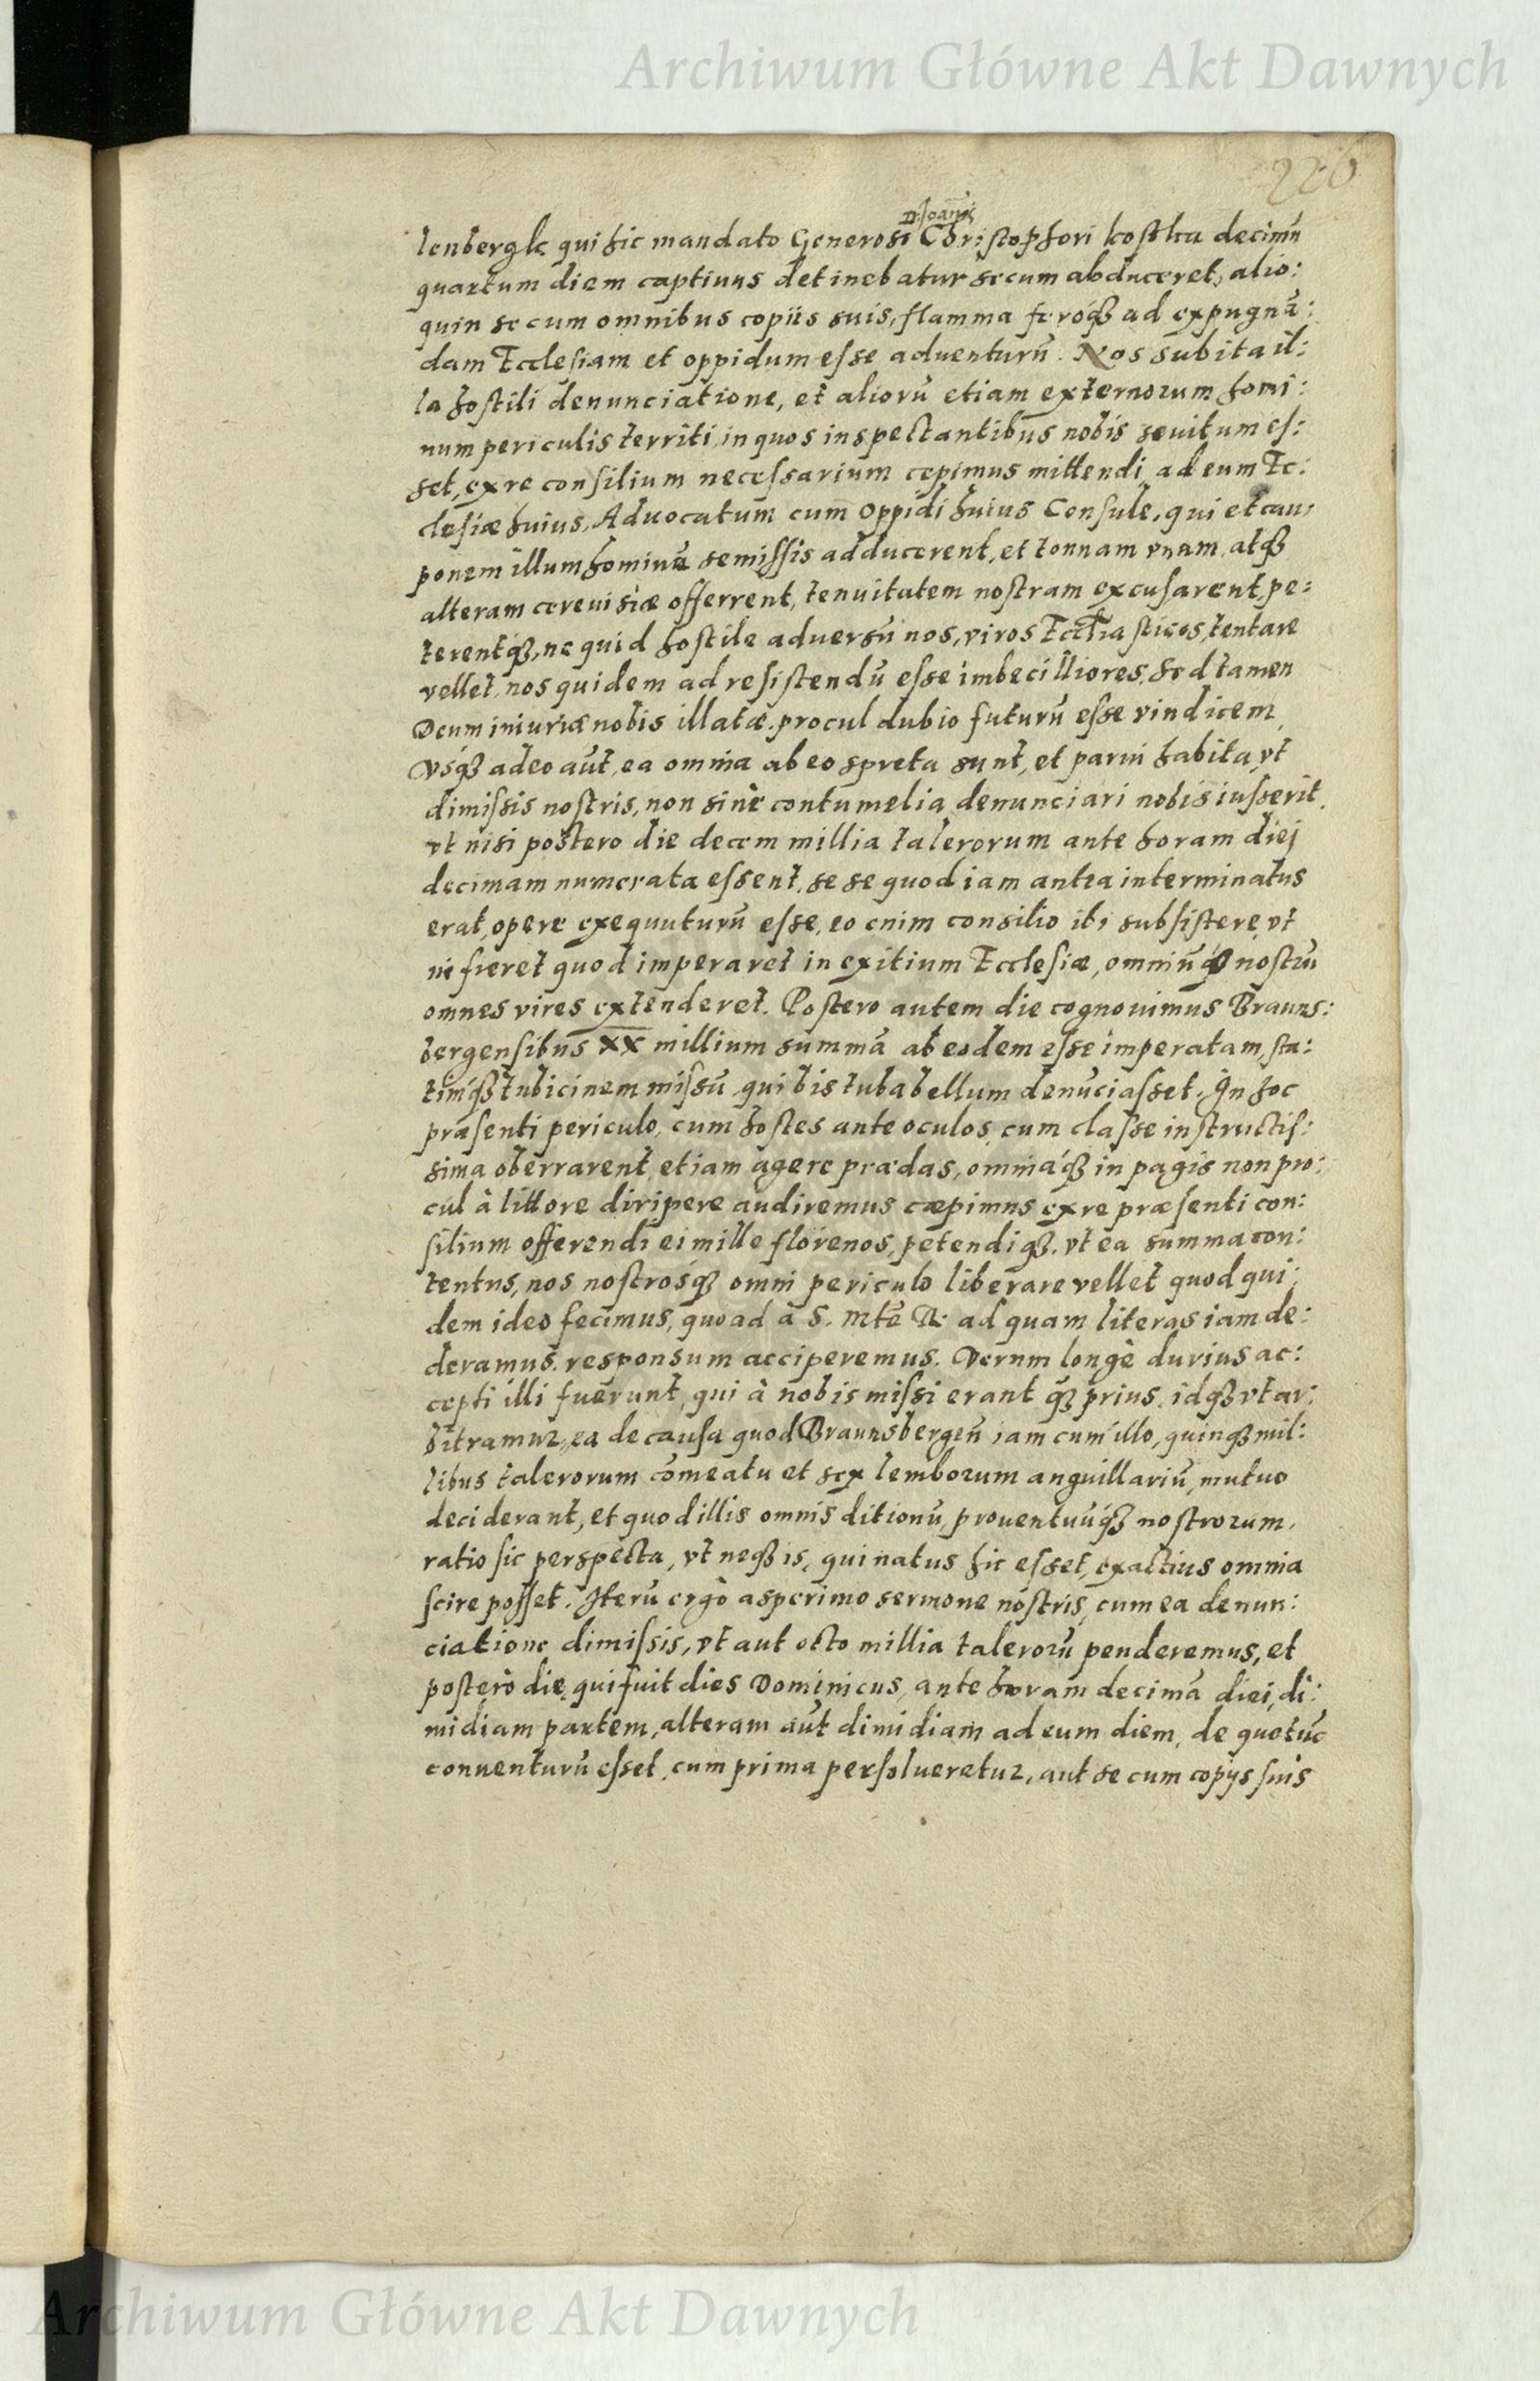 Archiwum Główne Akt Dawnych
226
D: Joannis
lenbergk qui hic mandato Generosi Christophori Kostka decimū
quartum diem captiuus detinebatur secum abduceret, alio:
quin se cum omnibus copiis suis, flamma ferróq́ꝫ ad expugnā:
dam Ecclesiam et oppidum esse aduenturū. Nos subita il:
la hostili denunciatione, et aliorū etiam externorum homi:
num periculis territi, in quos inspectantibus nobis sęuitum es:
set, ex re consilium necessarium cepimus mittendi ad eum Ec:
clesiæ huius, Aduocatum cum Oppidi huius Consule, qui et cau,
ponem illum hominē semissis adducerent, et tonnam vnam, atqꝫ
alteram cereuisiæ offerrent, tenuitatem nostram excusarent, pe:
terentq́ꝫ, ne quid hostile aduersū nos, viros Eccl̃iasticos, tentare
vellet, nos quidem ad resistendū esse imbecilliores, Sed tamen
Deum iniuriæ nobis illatæ, procul dubio futurū esse vindicem
Vsq́ꝫ adeo aūt, ea omnia ab eo spreta sunt, et parui habita, vt
dimissis nostris, non sinè contumelia denunciari nobis iusserit,
vt nisi postero die decem millia talerorum ante horam diej
decimam numerata essent, se se quod iam antea interminatus
erat, opere exequuturū esse, eo enim consilio ibi subsistere, vt
ni fieret quod imperaret in exitium Ecclesiæ, omniūq́ꝫ nostrū
omnes vires extenderet. Postero autem die cognouimus Brauns:
bergensibus XX millium summā ab eodem esse imperatam, sta:
timq́ꝫ tubicinem missū qui bis tuba bellum denūciasset. In hoc
præsenti periculo, cum hostes ante oculos, cum classe instructis:
sima oberrarent, etiam agere prædas, omniáq́ꝫ in pagis non pro:
cul à littore diripere audiremus cæpimus ex re præsenti con:
silium offerendi ei mille florenos, petendiqꝫ, vt ea summa con:
tentus, nos nostrosq́ꝫ omni periculo liberare vellet quod qui:
dem ideo fecimus, quoad a S. Mte R. ad quam literas iam de:
deramus, responsum acciperemus. Verum longè durius ac:
cepti illi fuerunt, qui à nobis missi erant qꝫ prius, idqꝫ vt ar:
bitramur, ea de causa quod Braunsbergeñ iam cum illo, quinqꝫ mil:
libus talerorum cōmeatu et sex lemborum anguillariū, mutuo
deciderant, et quod illis omnis ditionū prouentuūq́ꝫ nostrorum,
ratio sic perspecta, vt neqꝫ is, qui natus hic esset, exactius omnia
scire posset. Iterū ergò asperimo sermone nostris, cum ea denun:
ciatione dimissis, vt aut octo millia talerorū penderemus, et
postero die, qui fuit dies Dominicus, ante horam decimā diei, di:
midiam partem, alteram aūt dimidiam ad eum diem, de quo tūc
conuenturū esset, cum prima persolueretur, aut se cum copijs suis
Archiwum Główne Akt Dawnych